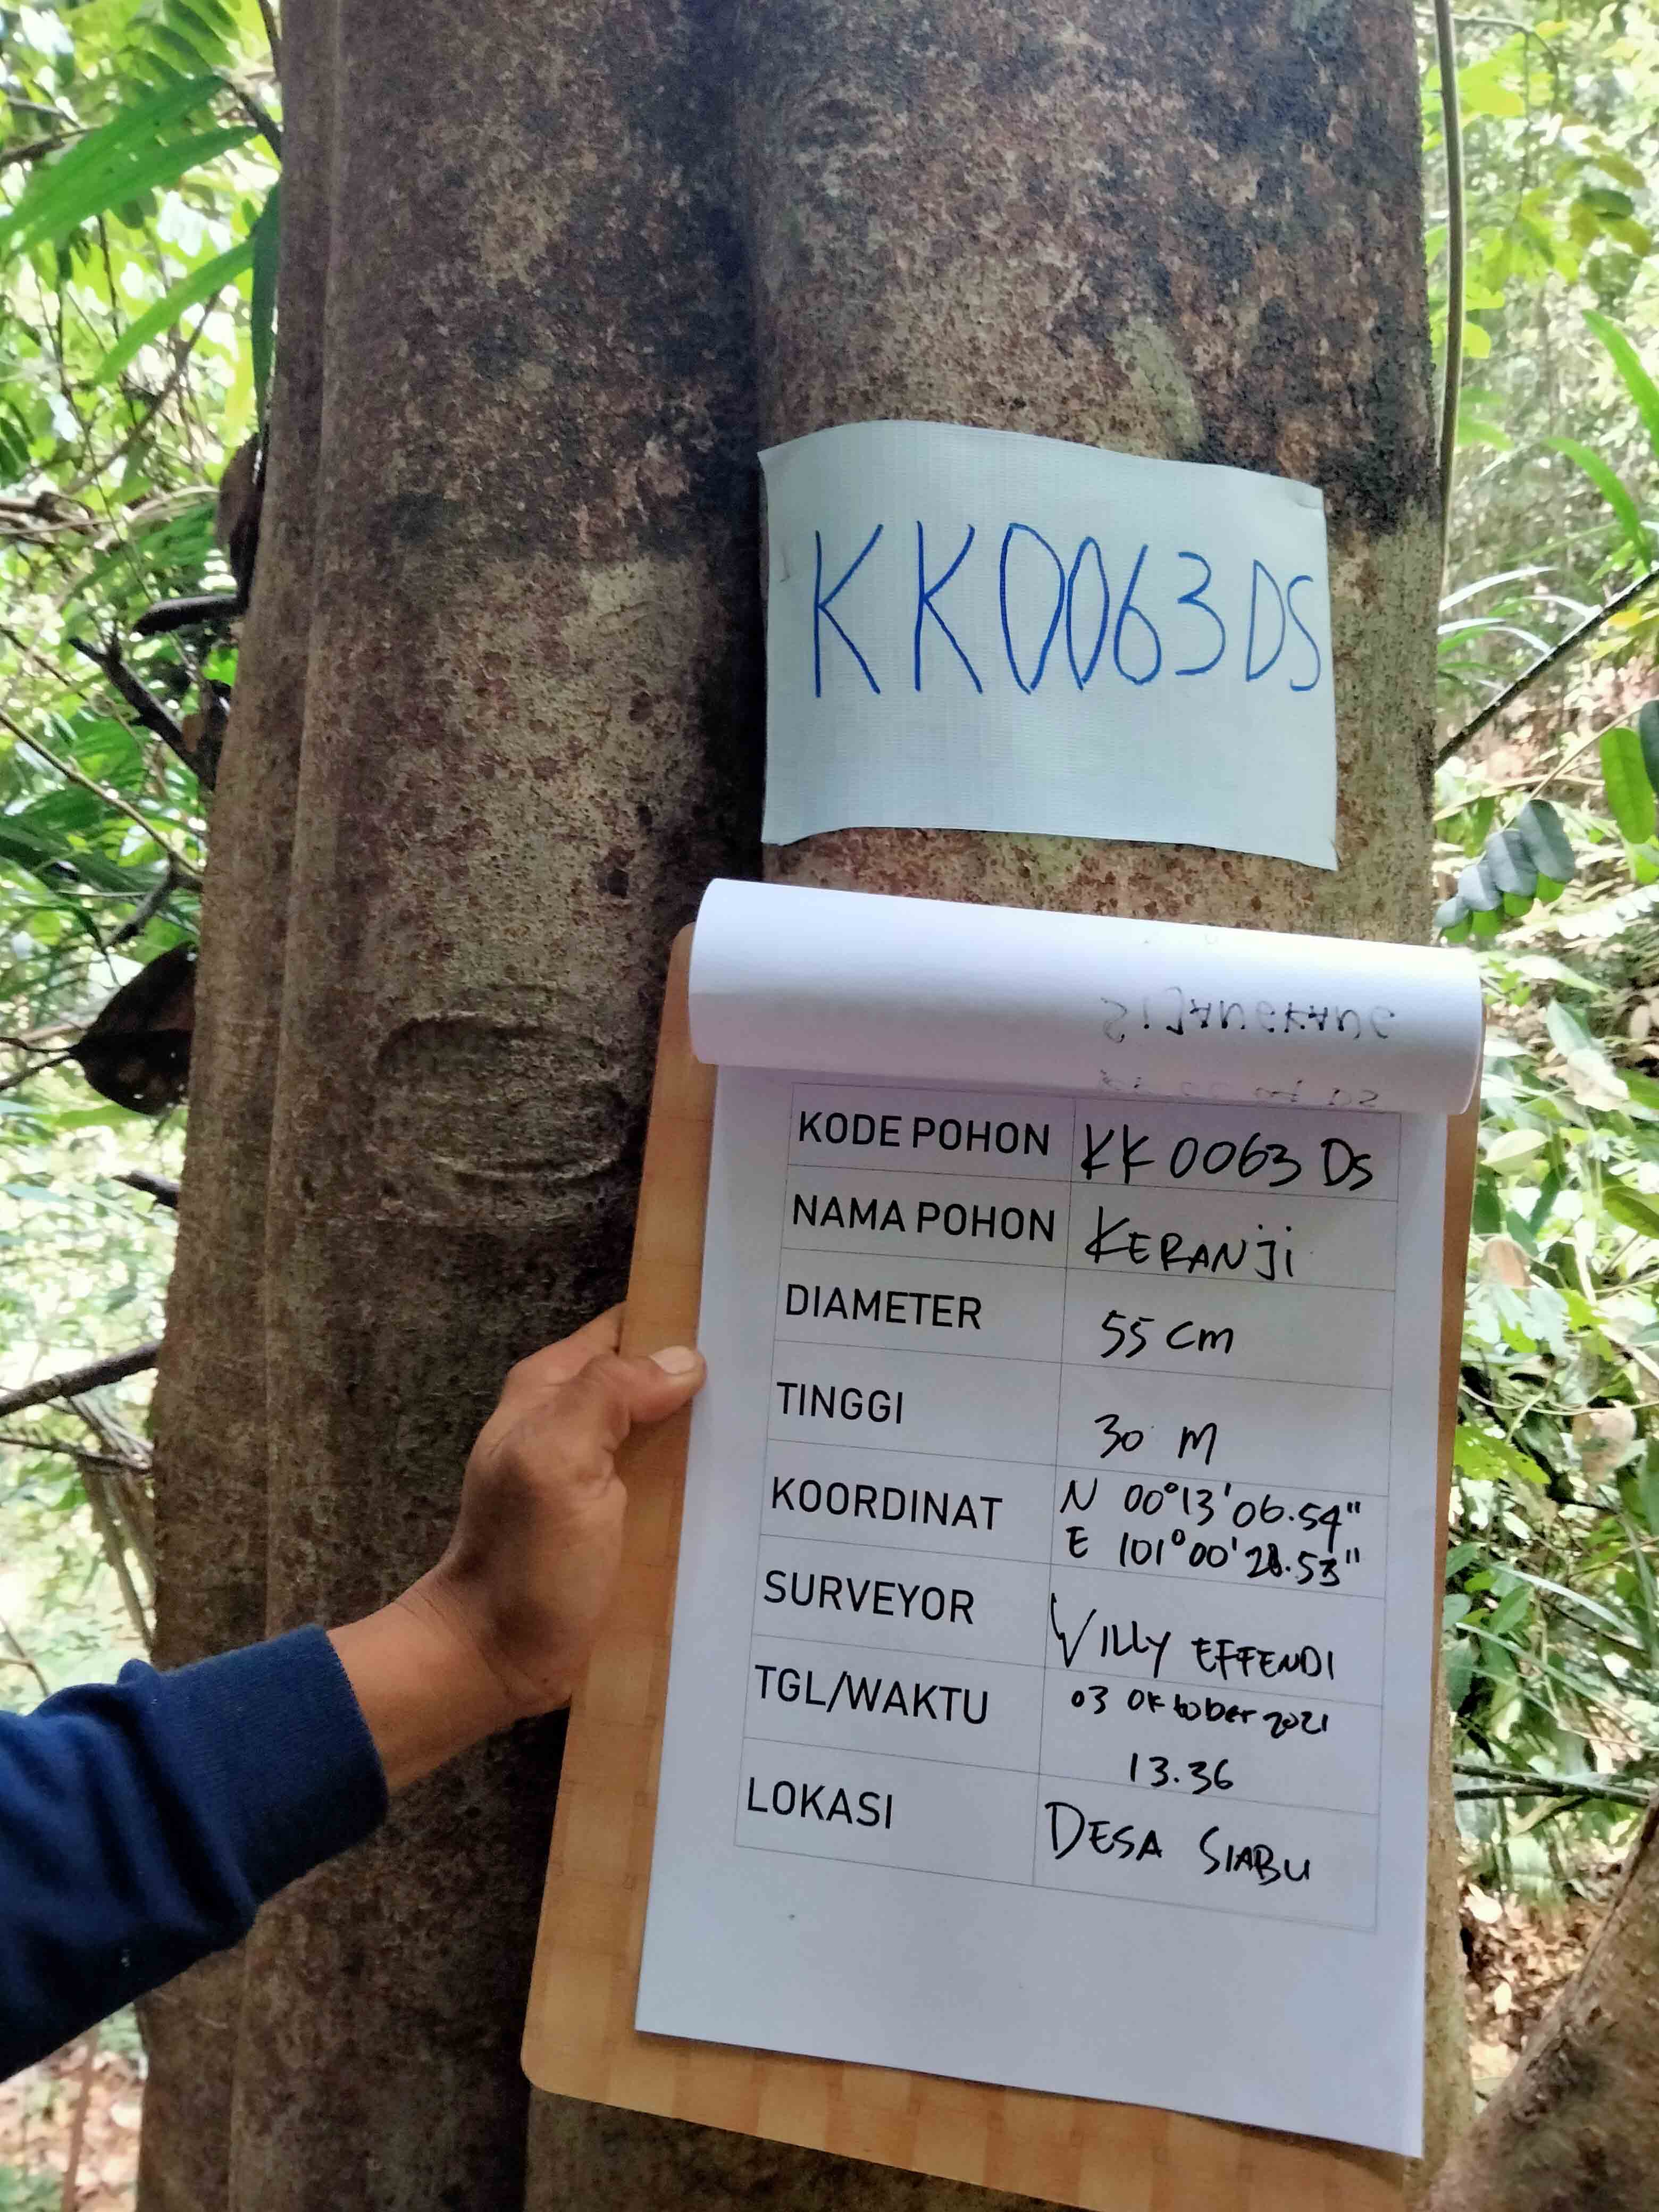 KK0063DS
SIJANGKANG
KODE POHON KK 0063 DS
NAMA POHON KERANJI
DIAMETER 55 cm
TINGGI 30 M
KOORDINAT N 00°13'06.54"
E 101°00'28.53"
SURVEYOR WILLY EFFENDI
TGL/WAKTU 03 OKtober 2021
13.36
LOKASI DESA SIABU